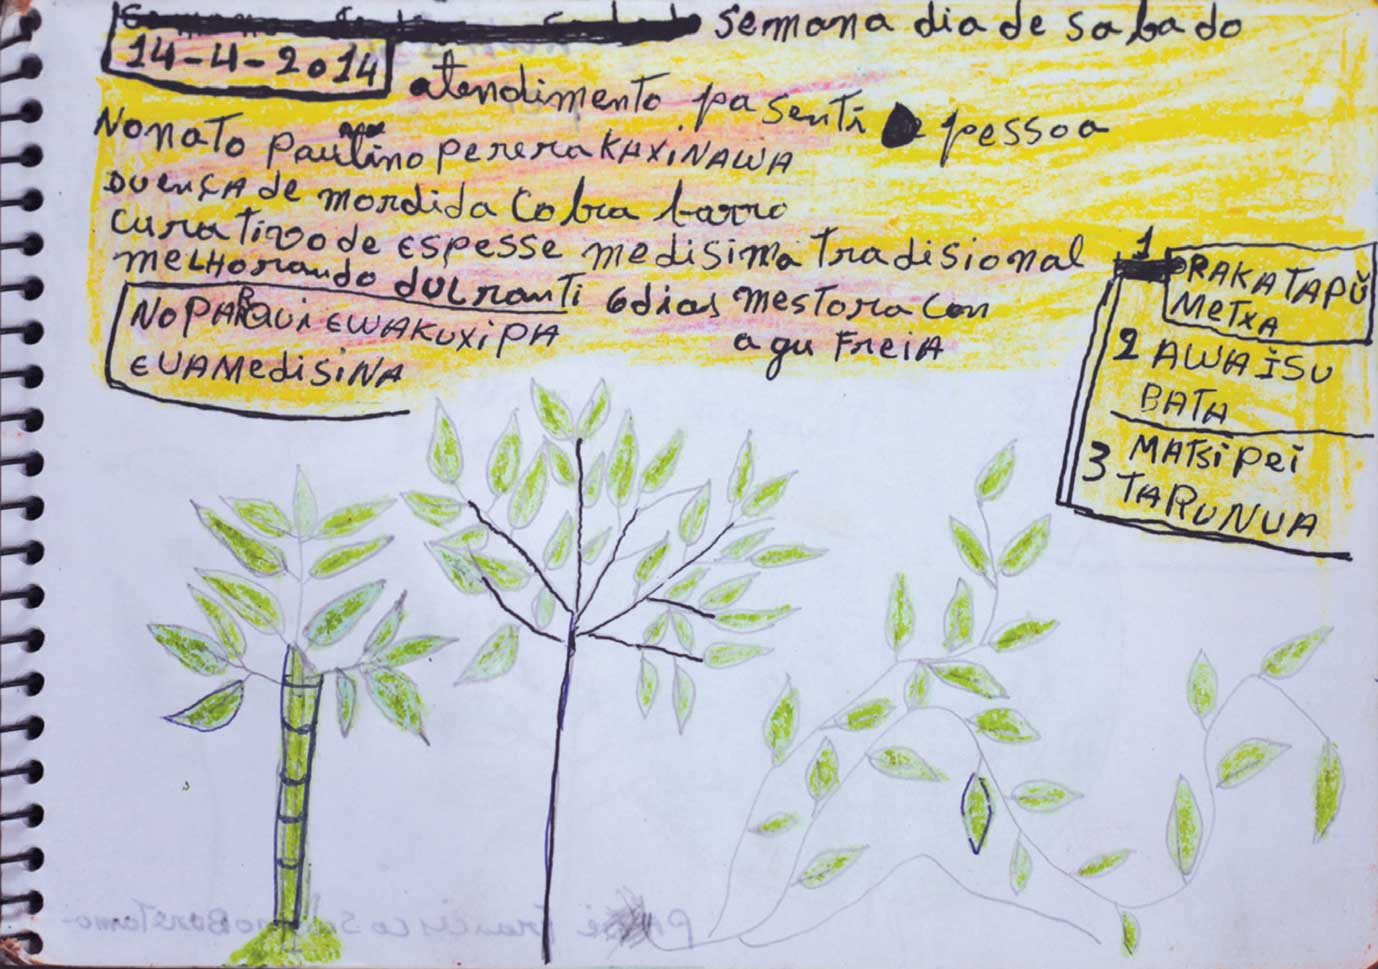 semana dia de sabado
14-4-2014
atendimento pasenti pessoa
Nonato Paulino perera KAXiNAWA
DUENÇA de mordida Cobra barro
Curativo de espesse medisima Tradisional
meLHorando duLranti 6 dias mestora Con
agu FreiA
NoPARQUi EWAKUXiPA
EUAMedisiNA
1 RAKATAPŬ
METXA
2 AWA ĬSU
BATA
3 MATSi Pei
TARUNUA